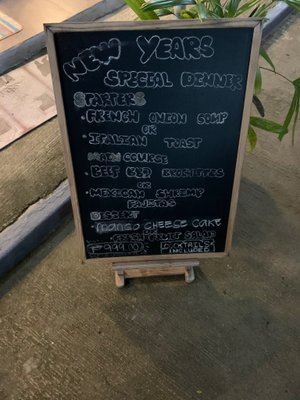 New Years
Special Dinner
Starters
• French Onion Soup
or
• Italian Toast
Main Course
• Beef Brochettes
or
• Mexican Shrimp
Fajitas
Dessert
• Mango Cheese Cake
Fruit Salad
999.00
Cocktails
Include